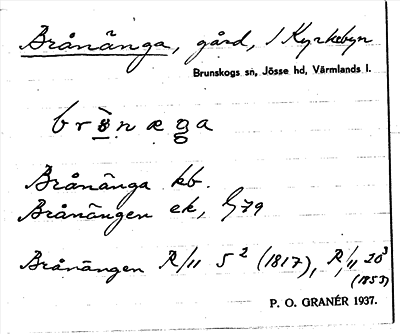 Brånänga, gård, / Kyrkebyn
Brunskogs sn, Jösse hd, Värmlands l.
Brånänga kb.
Brånängen ek, G79
Brånängen R/11 5² (1817), R/11 20³
(1853)
P. O. GRANÉR 1937.